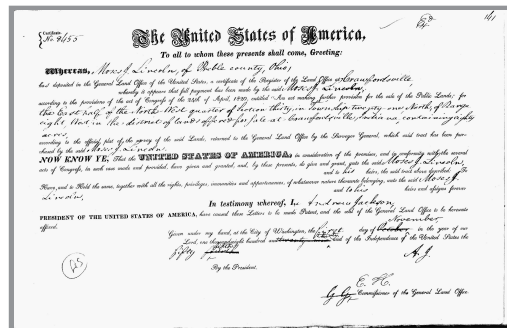 Certificate
No. 9455
141
The United States of America,
To all to whom these presents shall come, Greeting:
Whereas, Moses J. Lincoln, of Preble county, Ohio,
has deposited in the General Land Office of the United States, a certificate of the Register of the Land Office at Crawfordsville
whereby it appears that full payment has been made by the said Moses J. Lincoln,
according to the provisions of the act of Congress of the 24th of April, 1820, entitled "An act making further provision for the sale of the Public Lands," for
the East half of the North West quarter of section thirty, in township twenty one North, of Range
eight West in the district of lands offered for sale at Crawfordsville, Indiana, containing eighty
acres,
according to the official plat of the survey of the said Lands, returned to the General Land Office by the Surveyor General, which said tract has been pur-
chased by the said Moses J. Lincoln,
NOW KNOW YE, That the UNITED STATES OF AMERICA, in consideration of the promises, and in conformity with the several
acts of Congress, in such case made and provided, have given and granted, and, by these presents, do give and grant, unto the said Moses J. Lincoln,
and to his heirs, the said tract above described: To
Have and to Hold the same, together with all the rights, privileges, immunities and appurtenances, of whatsoever nature thereunto belonging, unto the said Moses J.
Lincoln, and to his heirs and assigns forever
In testimony whereof, I, Andrew Jackson,
PRESIDENT OF THE UNITED STATES OF AMERICA, have caused these Letters to be made Patent, and the seal of the General Land Office to be hereunto
affixed.
November,
Given under my hand, at the City of Washington, the first day of October, in the year of our
Lord, one thousand eight hundred and of the Independence of the United States the
fifty
By the President,
A. J.
E. H.
Commissioner of the General Land Office